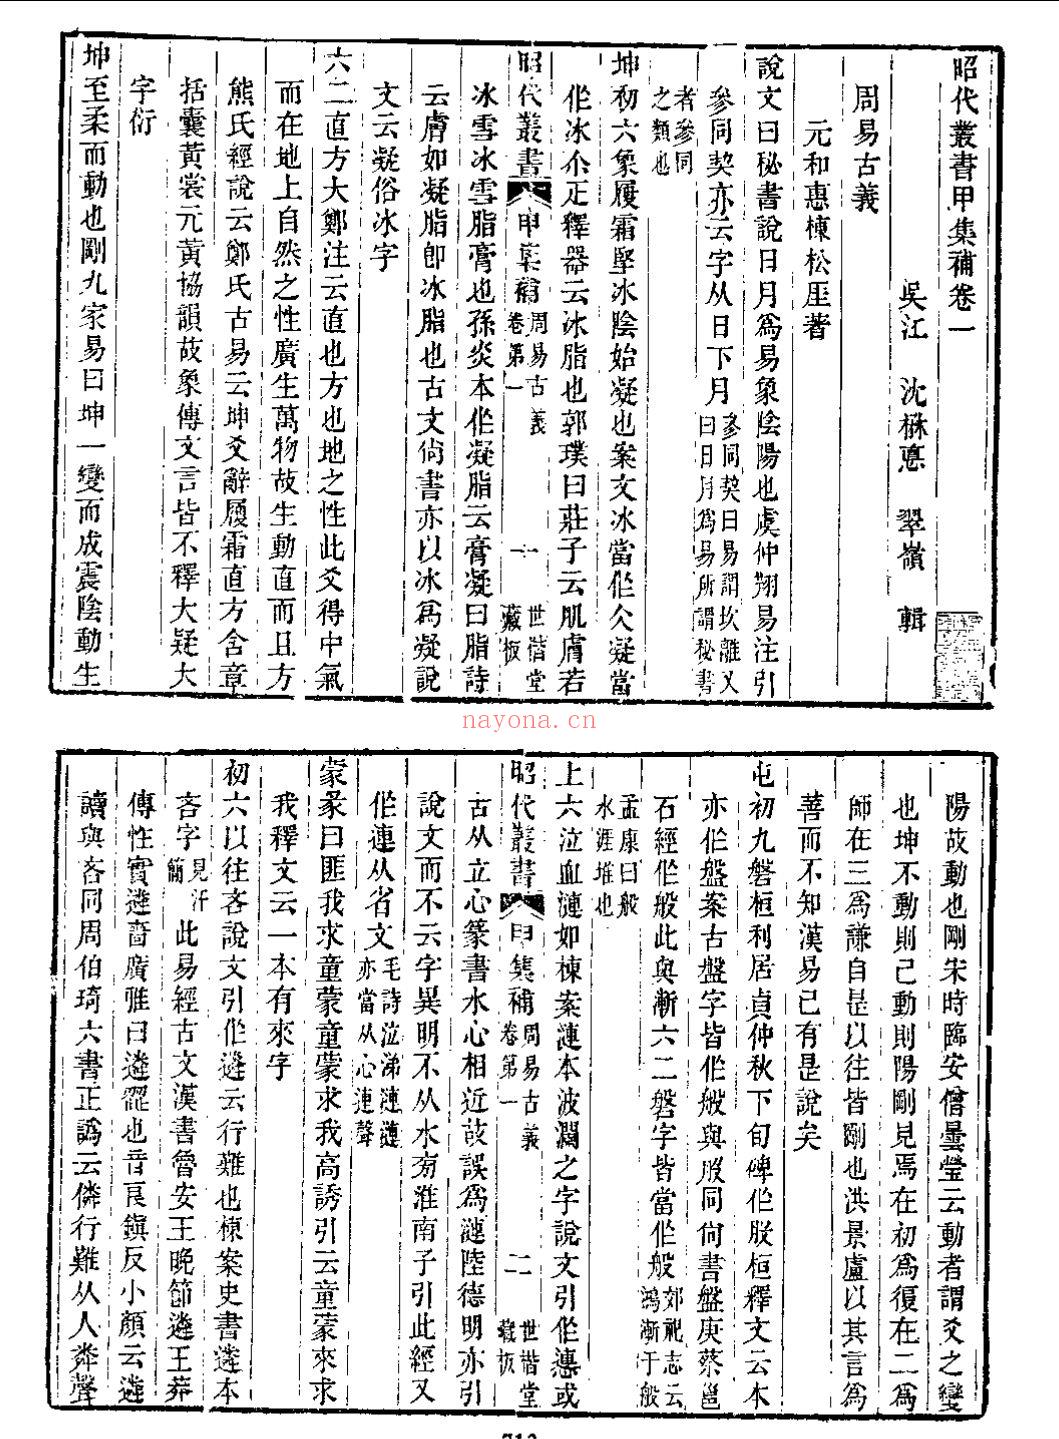 昭代叢書甲集補卷一
吳江 沈楙悳 翠嶺 輯
周易古義
元和惠棟松厓著
說文曰秘書說日月爲易象陰陽也虞仲翔易注引
參同契亦云字从日下月參同契曰易謂坎離又曰日月爲易所謂秘書
者參同之類也
坤初六象履霜堅冰陰始凝也案文冰當作仌凝當
作冰尒疋釋器云冰脂也郭璞曰莊子云肌膚若
昭代叢書 甲集補 周易古義卷第一 一 世楷堂藏板
冰雪冰雪脂膏也孫炎本作凝脂云膏凝曰脂詩
云膚如凝脂卽冰脂也古文尙書亦以冰爲凝說
文云凝俗冰字
六二直方大鄭注云直也方也地之性此爻得中氣
而在地上自然之性廣生萬物故生動直而且方
熊氏經說云鄭氏古易云坤爻辭履霜直方含章
括囊黃裳元黃協韻故象傳文言皆不釋大疑大
字衍
坤至柔而動也剛九家易曰坤一變而成震陰動生
陽故動也剛宋時臨安僧曇瑩云動者謂爻之變
也坤不動則已動則陽剛見焉在初爲復在二爲
師在三爲謙自是以往皆剛也洪景盧以其言爲
善而不知漢易已有是說矣
屯初九磐桓利居貞仲秋下旬碑作股桓釋文云本
亦作盤案古盤字皆作般與股同尙書盤庚蔡邕
石經作般此與漸六二磐字皆當作般郊祀志云鴻漸于般
孟康曰般水涯堆也
上六泣血漣如棟案漣本波瀾之字說文引作㦁或
昭代叢書 甲集補 周易古義卷第一 二 世楷堂藏板
古从立心篆書水心相近故誤爲漣陸德明亦引
說文而不云字異明不从水旁淮南子引此經又
作連从省文毛詩泣涕漣漣亦當从心連聲
蒙彖曰匪我求童蒙童蒙求我高誘引云童蒙來求
我釋文云一本有來字
初六以往吝說文引作遴云行難也棟案史書遴本
吝字見汗簡此易經古文漢書魯安王晚節遴王莽
傳性實遴嗇廣雅曰遴䍼也音良鎭反小顏云遴
讀與吝同周伯琦六書正譌云僯行難从人粦聲
713
nayona.cn